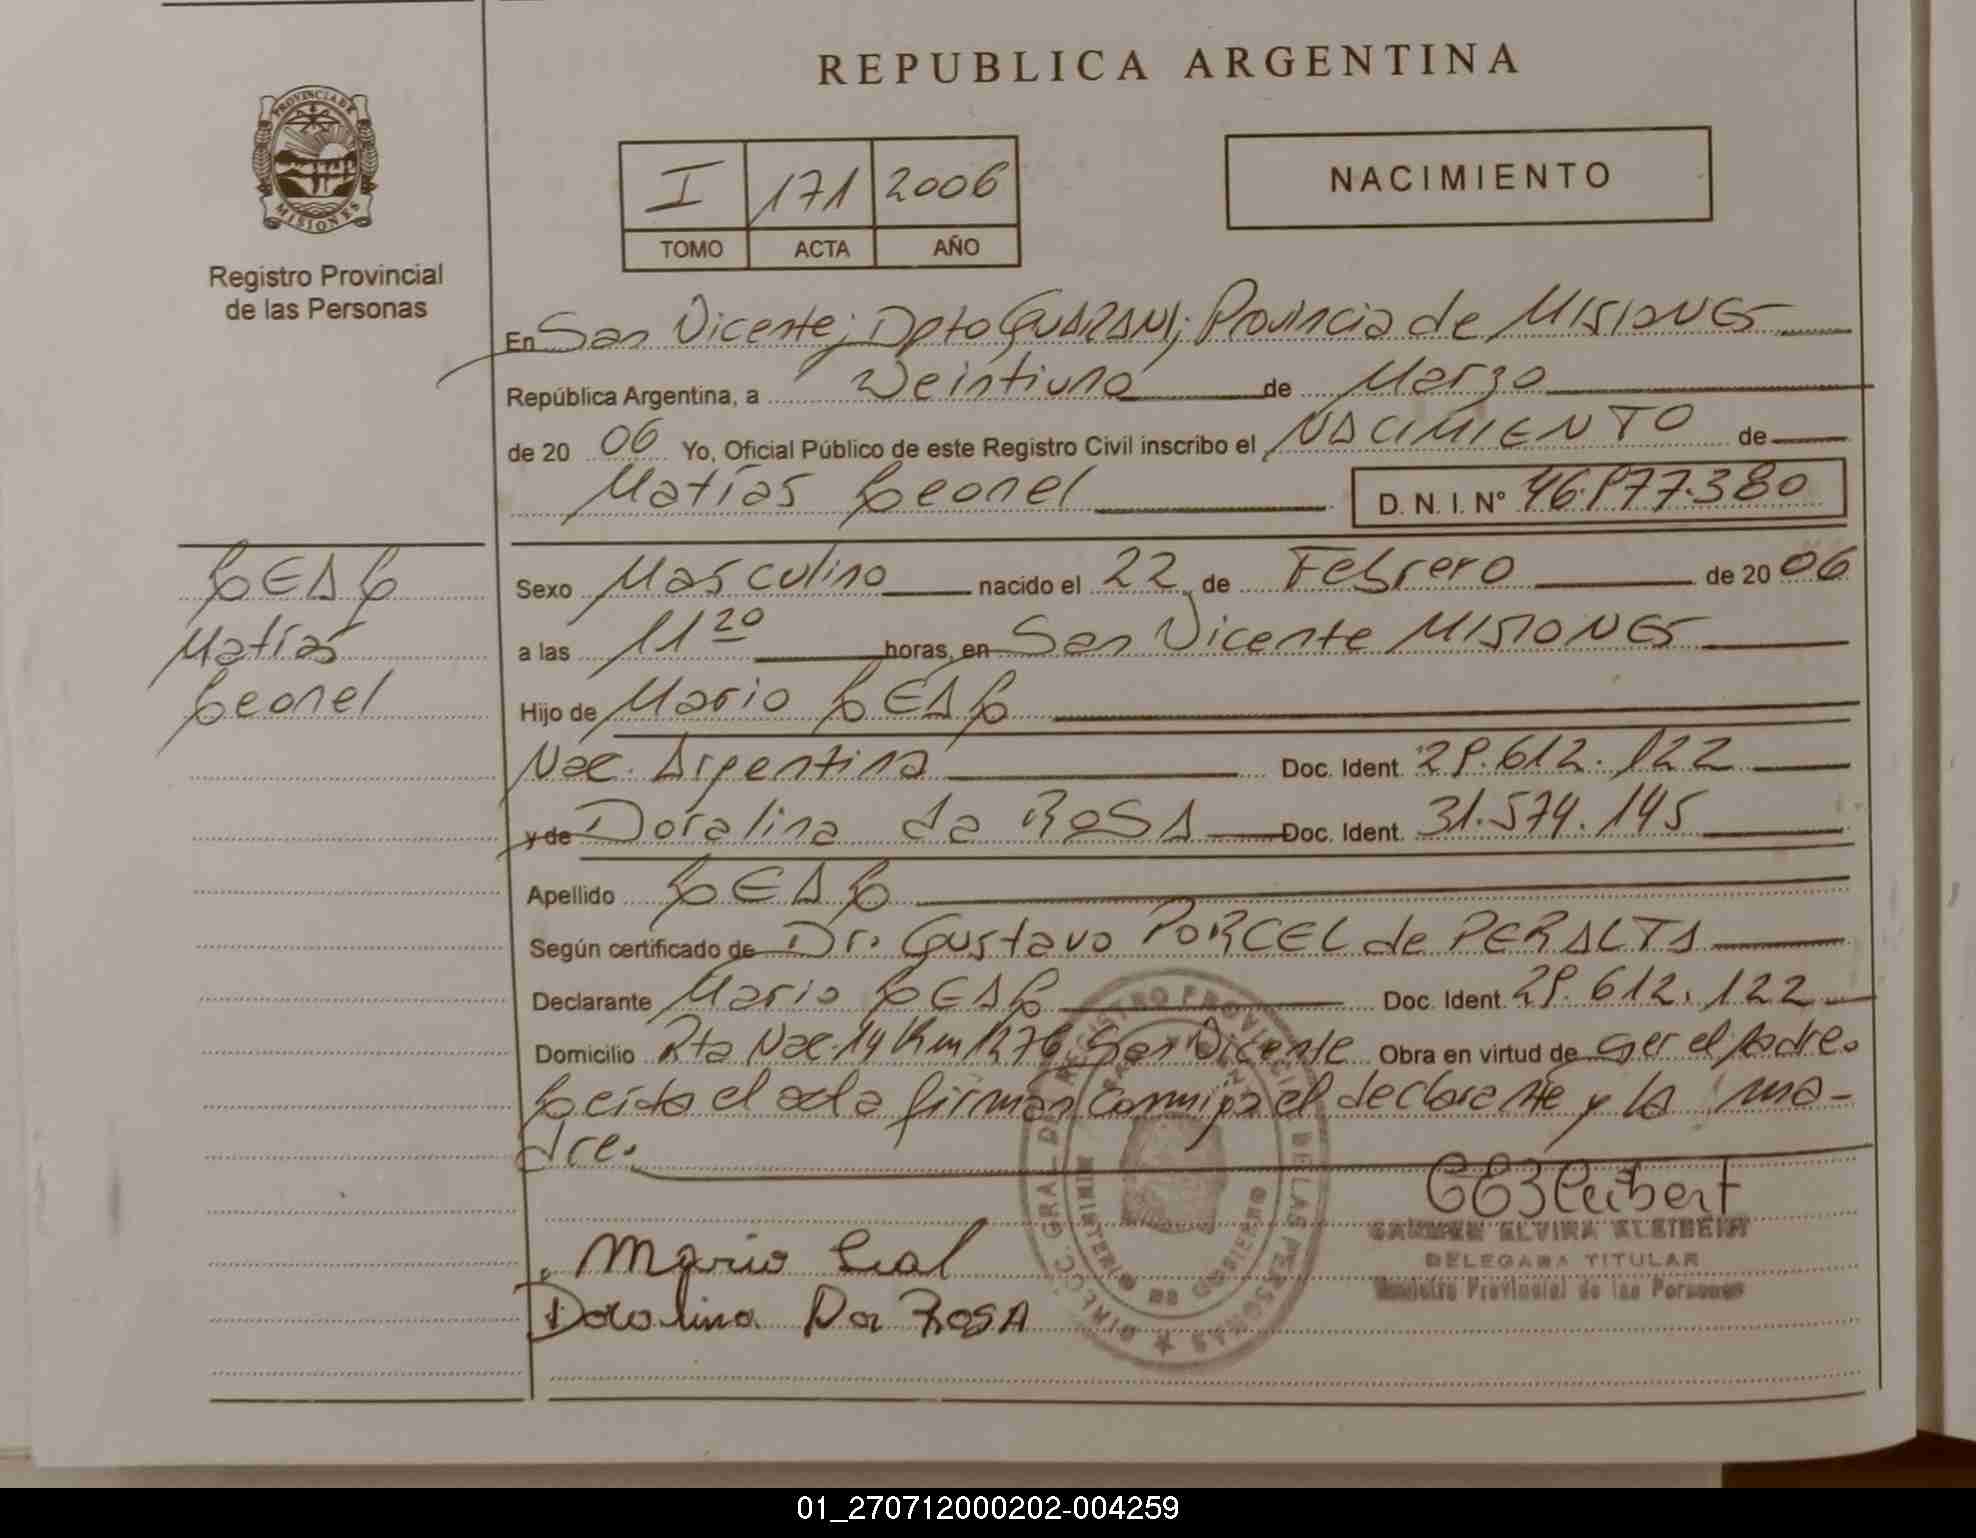 REPUBLICA ARGENTINA
PROVINCIA DE MISIONES
Registro Provincial
de las Personas
I 171 2006
TOMO ACTA AÑO
NACIMIENTO
En San Vicente; Dpto GUARANI; Provincia de MISIONES
República Argentina, a Veintiuno de Marzo
de 20 06 Yo, Oficial Público de este Registro Civil inscribo el NACIMIENTO de
Matías Leonel D. N. I. N° 46.977.380
LEAL
Matías
Leonel
Sexo Masculino nacido el 22 de Febrero de 20 06
a las 11 20 horas, en San Vicente MISIONES
Hijo de Mario LEAL
Nac. Argentina Doc. Ident. 29.612.122
y de Doralina da ROSA Doc. Ident. 31.574.145
Apellido LEAL
Según certificado de Dr. Gustavo PORCEL de PERALTA
Declarante Mario LEAL Doc. Ident. 29.612.122
Domicilio Rta Nac. 14 Km 1276 San Vicente Obra en virtud de ser el padre.
Leída el acta firman conmigo el declarante y la ma-
dre.
Mario Leal
Doralina Da ROSA
CEBKleibert
CARMEN ELVIRA KLEIBERT
DELEGADA TITULAR
Registro Provincial de las Personas
DIRECC. GRAL. DEL REGISTRO PROVINCIAL DE LAS PERSONAS
MINISTERIO DE GOBIERNO
01_270712000202-004259